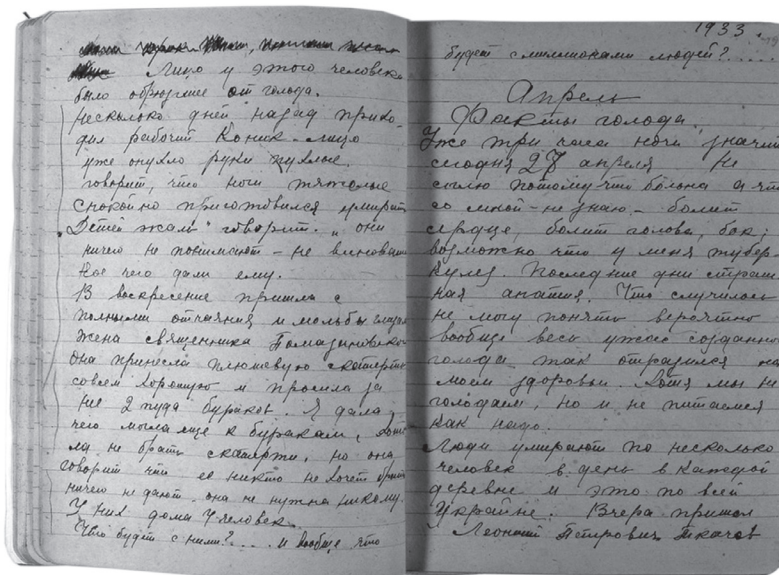 Лицо у этого человека
было обрюзгшее от голода.
Несколько дней назад прихо-
дил рабочий Коник - лицо
уже опухло руки пухлые
говорит, что ноги тяжолые
спокойно приготовился умирать
„Детей жаль" говорит. „они
ничего не понимают - не виноваты
Кое чего дали ему.
В воскресение пришла с
полными отчаяния и мольбы глазами
жена священника
она принесла плюшевую скатерть
совсем хорошую и просила за
неё 2 пуда бураков. Я дала
чего могла еще к буракам, хоте
ла не брать скатерти, но она
говорит что её никто не хочет брать
ничего не дают она не нужна никому.
У них дома 7 человек.
Что будет с ними?.... и вообще что
1933
будет с миллионами людей?.....
Апрель
Факты голода.
Уже три часа ночи значит
сегодня 27 апреля Не
сплю потому что больна а что
со мной - не знаю - болит
сердце, болит голова, бок;
возможно что у меня тубер-
кулез. Последние дни страш
ная апатия. Что случилось
не могу понять вероятно
вообще весь ужас создан
голода так отразился на
моем здоровьи. Хотя мы не
голодаем, но и не питаемся
как надо.
Люди умирают по несколько
человек в день в каждой
деревне и это по всей
Украине. Вчера пришол
Леонтий Петрович Ткачов